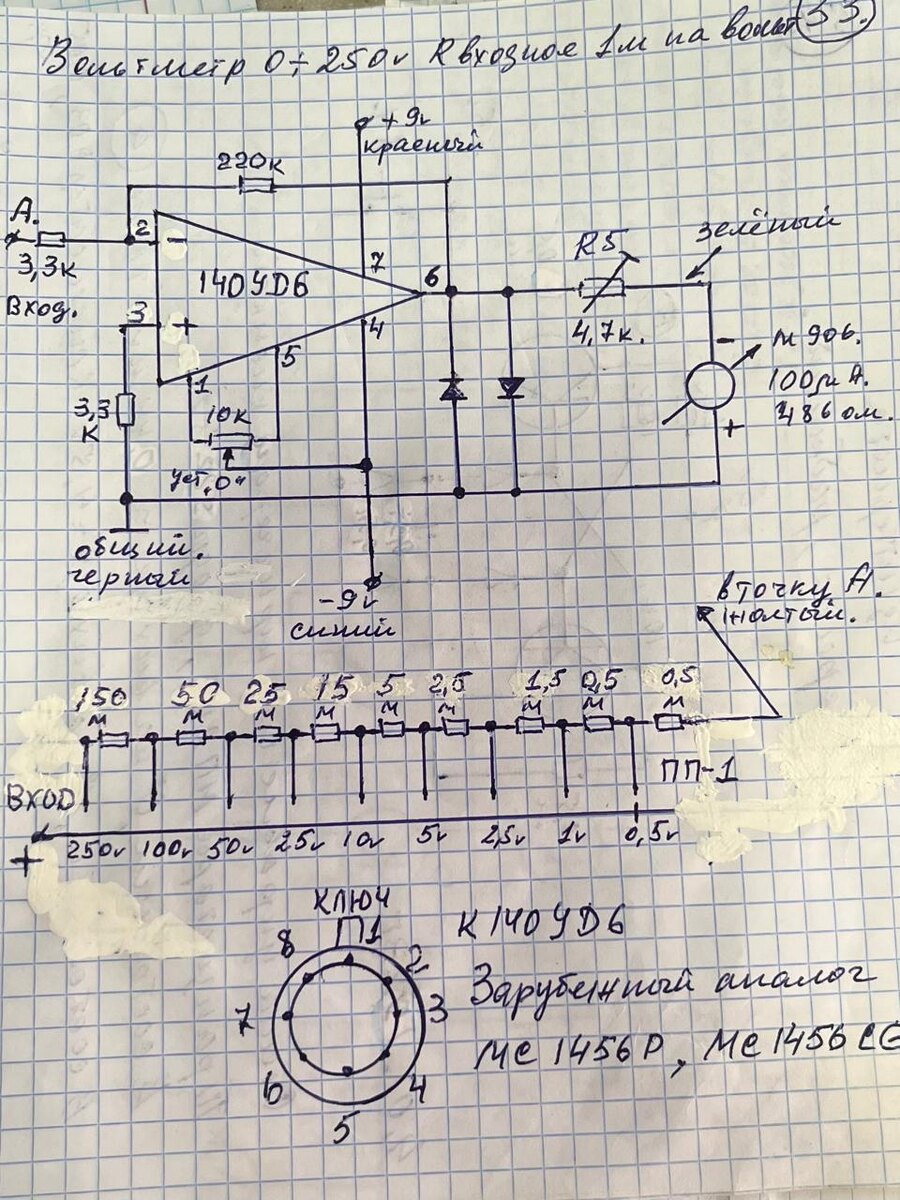 33.
Вольтметр 0÷250v R входное 1м на вольт
+9v
красный
220к
А.
3,3к
Вход.
2
−
140УД6
7
6
3
+
4
5
1
3,3
к
10к
уст,0"
R5
4,7к.
зелёный
−
м 906.
100μА.
486 ом.
+
общий.
чёрный
−9v
синий
в точку А.
жолтый.
150 50 25 15 5 2,5 1,5 0,5 0,5
м м м м м м м м м
ПП-1
ВХОД
+
250v 100v 50v 25v 10v 5v 2,5v 1v 0,5v
КЛЮЧ
1
8
2
7
3
6
4
5
К140УД6
Зарубежный аналог
МС1456Р, МС1456CG